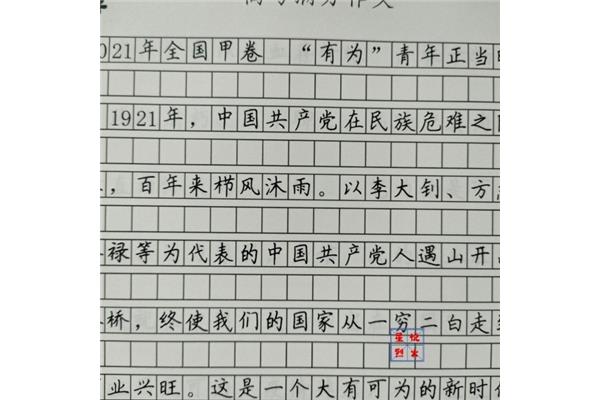 高考满分作文
021年全国甲卷 “有为”青年正当时
1921年，中国共产党在民族危难之
，百年来栉风沐雨。以李大钊、方
禄等为代表的中国共产党人遇山开
桥，终使我们的国家从一穷二白走
业兴旺。这是一个大有可为的新时